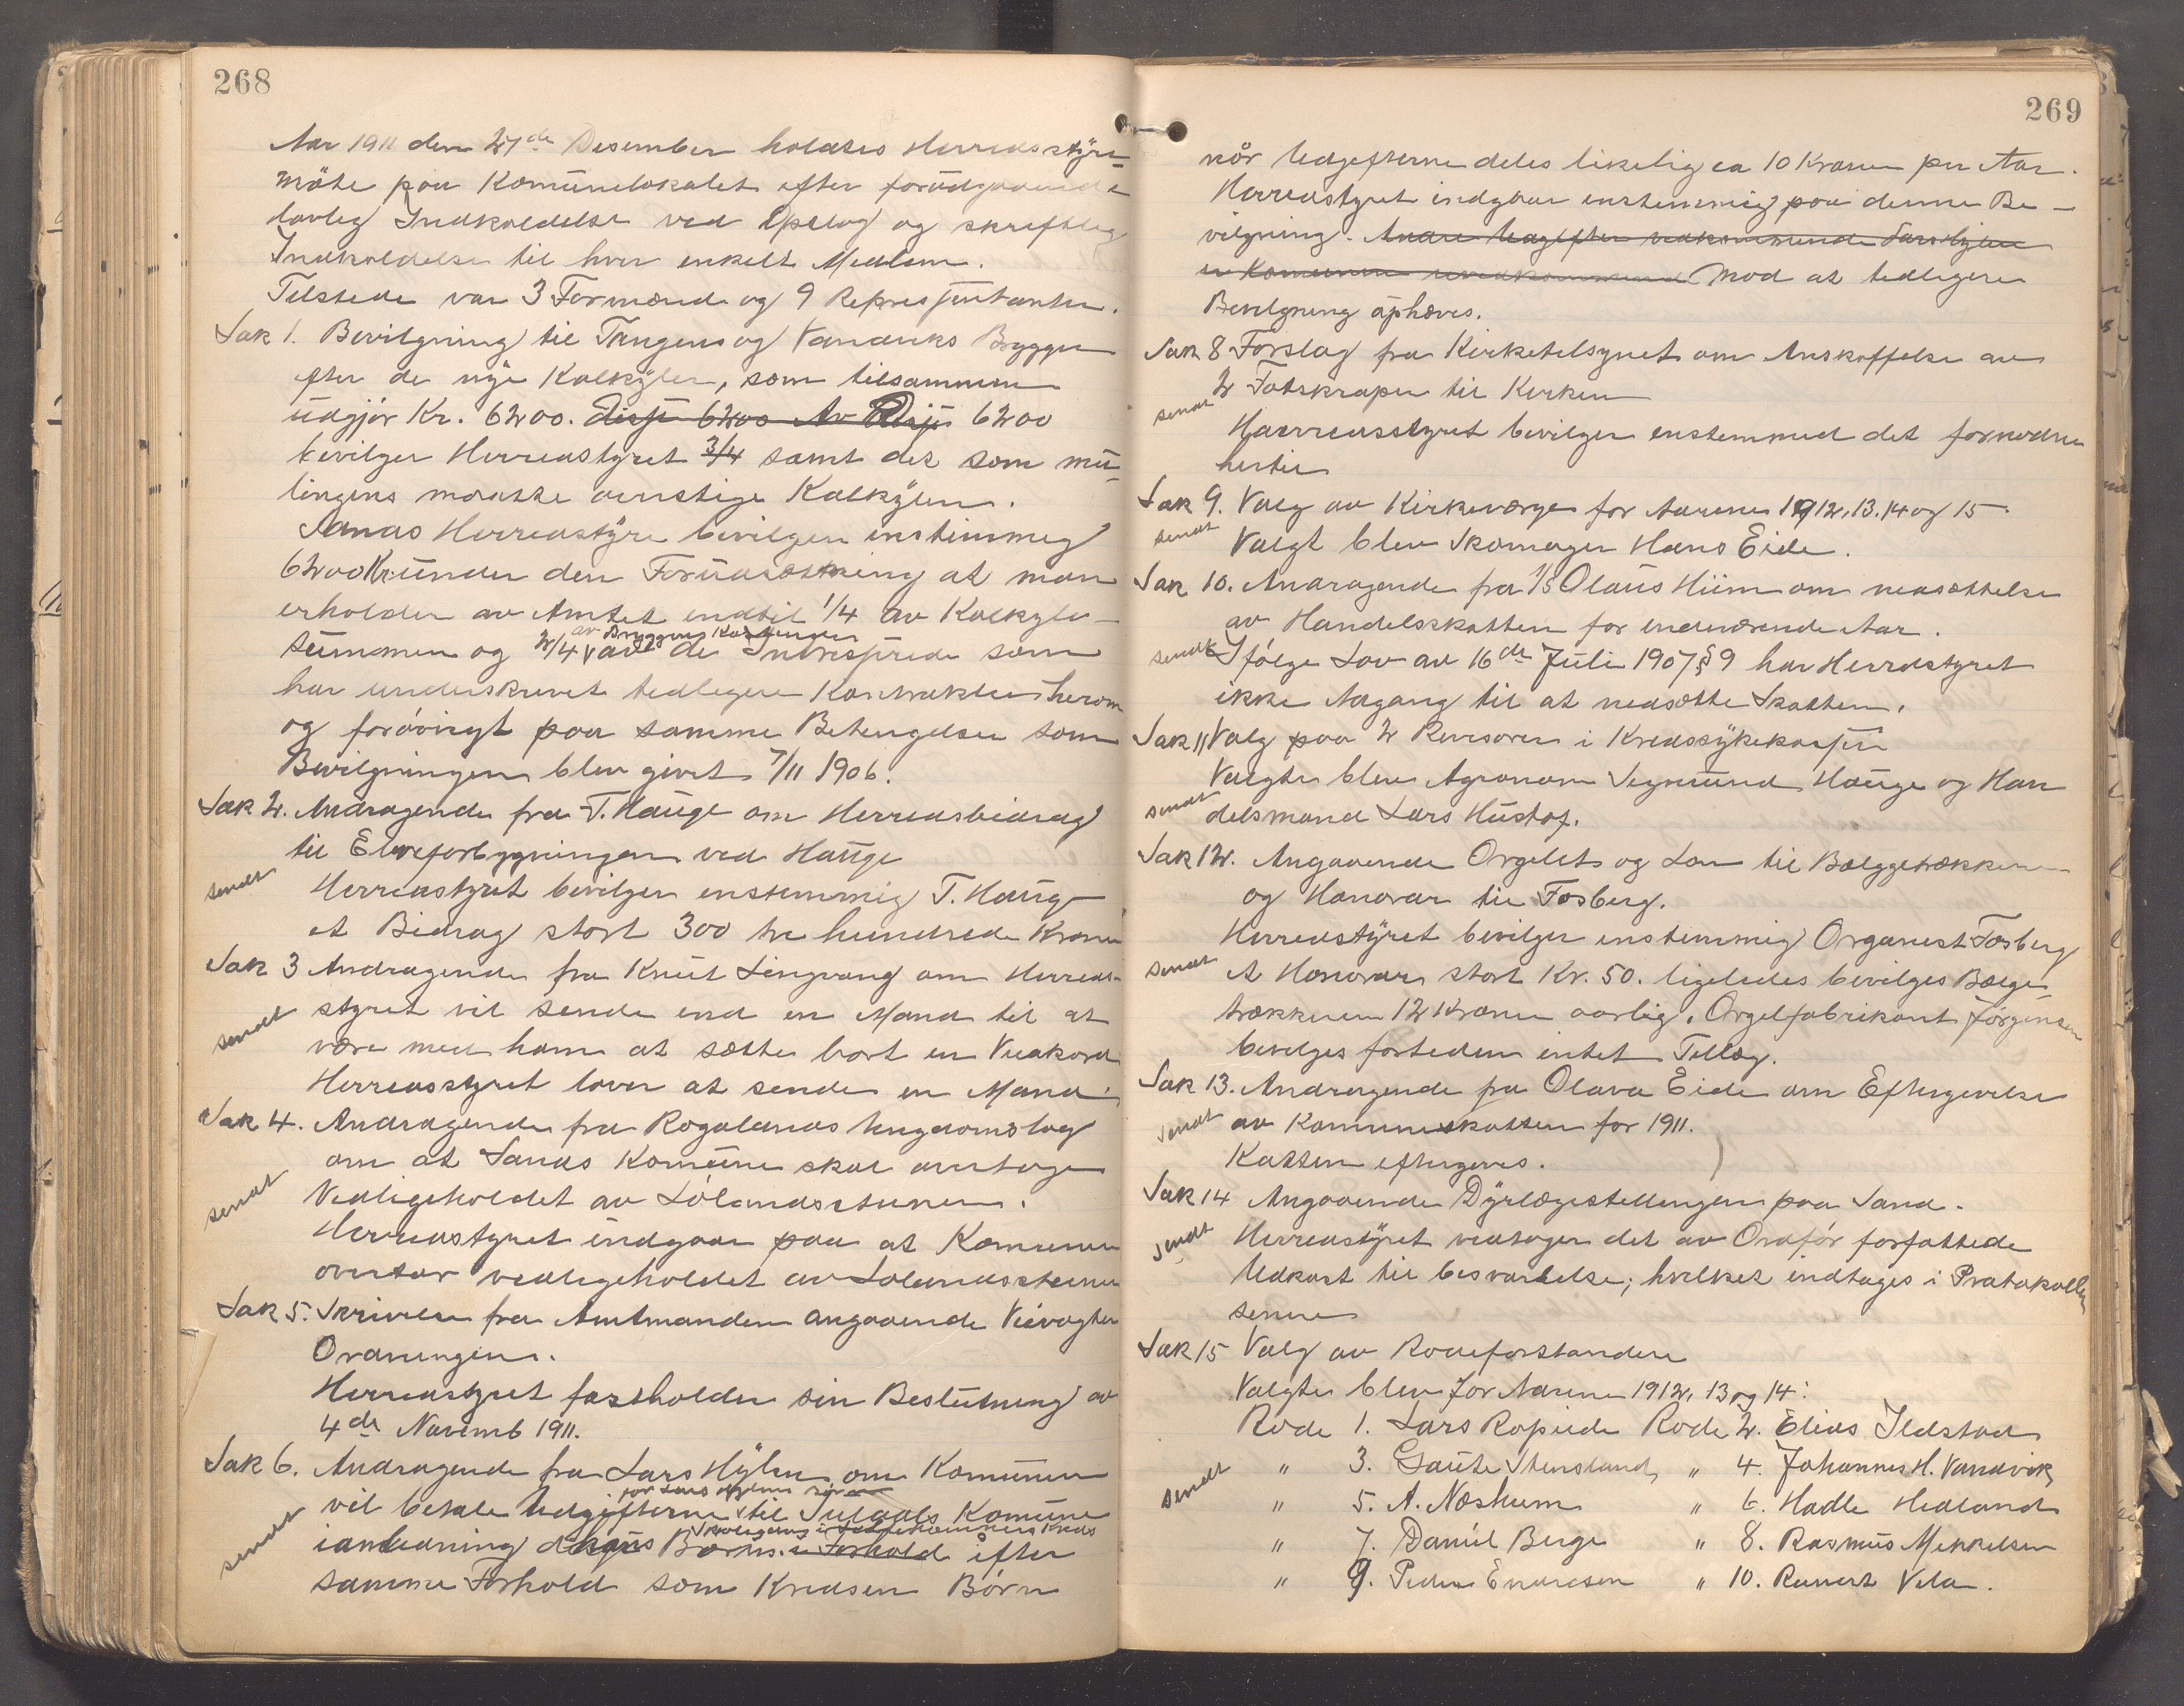 268
Aar 1911 den 27de Desember holdtes Herredsstyre-
møte paa Komunelokalet efter forudgaaende
lovlig Indkaldelse ved Opslag og skriftlig
Indkaldelse til hver enkelt Medlem.
Tilstede var 3 Formænd og 9 Repræsentanter.
Sak 1. Bevilgning til Tangens og Vandviks Brygger
efter de nye Kalkyler, som tilsammen
udgjør Kr. 6200. Disse 6200 Av Disse 6200
bevilger Herredstyret 3/4 samt det som mu-
ligens maatte overstige Kalkylen.
Sands Herredstyre bevilger enstemmig
6200 Kr under den Forudsætning at man
erholder av Amtet indtil 1/4 av Kalkyle-
av Bryggens Kostende
summen og 2/4 av de Interesserede som
har underskrevet tidligere Kontrakter herom
og forøvrigt paa samme Betingelser som
Bevilgningen blev givet 7/11 1906.
Sak 2. Andragende fra T. Hauge om Herredsbidrag
til Elveforbygningen ved Hauge
sendt Herredstyret bevilger enstemmig T. Hauge
et Bidrag stort 300 tre hundrede Kroner
Sak 3 Andragende fra Knut Lingvang om Herreds-
styret vil sende end en Mand til at
sendt være med ham at sætte bort en Veiakord
Herredsstyret lover at sende en Mand.
Sak 4. Andragende fra Rogalands Ungdomslag
om at Sands Komune skal overtage
sendt Vedligeholdet av Lølandsstuen.
Herredstyret indgaar paa at Komunen
overtar vedligeholdet av Lølandsstuen
Sak 5. Skrivelse fra Amtmanden angaaende Veivogter
Ordningen.
Herredstyret fastholder sin Beslutning av
4de Novemb 1911.
Sak 6. Andragende fra Lars Hylen om Komunen
for Lars Hylens
vil betale Udgifterne til Suldals Komune
Skolegang i Kreds
sendt ianledning dennes Børns Forhold efter
samme Forhold som Kredsen Børn
269
når Udgifterne deles likelig ca 10 Kroner pr Aar.
Herredstyret indgaar enstemmig paa denne Be-
vilgning. Andre Udgifter vedkommende Lars Hylen
er Komunen uvedkommende Mod at tidligere
Bevilgning ophæves.
Sak 8 Forslag fra Kirketilsynet om Anskaffelse av
2 Fotskraper til Kirken
sendt
Herredsstyret bevilger enstemmed det fornødne
hertil
Sak 9. Valg av Kirkeverge for Aarene 1912, 13. 14 og 15.
sendt Valgt blev Skomager Hans Eide.
Sak 10. Andragende fra Olaus Hiim om nedsættelse
av Handelsskatten for indeværende Aar.
sendt Ifølge Lov av 16de Juli 1907 § 9 har Herredstyret
ikke Adgang til at nedsætte Skatten.
Sak 11 Valg paa 2 Revisorer i Kredssykekassen
Valgte blev Agronom Segmund Hauge og Han
sendt delsmand Lars Hustof.
Sak 12. Angaaende Orgelet og Løn til Bælggetrækkeren
og Honorar til Fosberg.
Herredstyret bevilger enstemmig Organist Fosberg
sendt et Honorar stort Kr. 50. ligeledes bevilges Bælge-
trækkeren 12 Kroner aarlig. Orgelfabrikant Jørgensen
bevilges fortiden intet Tillæg.
Sak 13. Andragende fra Olava Eide om Eftergivelse
sendt av Komuneskatten for 1911.
Katten eftergives.
Sak 14 Angaaende Dyrlægestillingen paa Sand.
sendt Herredstyret vedtager det av Ordfør forfattede
Udkast til besvarelse; hvilket indtages i Protokollen
senere
Sak 15 Valg av Rodeforstandere
Valgte blev for Aarene 1912, 13 og 14:
Rode 1. Lars Ropeide Rode 2. Elias Ilstad
sendt " 3. Gaute Stensland, " 4. Johannes H. Vandvik,
" 5. A. Næsheim " 6. Hadle Hedland
" 7. Daniel Berge " 8. Rasmus Mekkelsen
" 9. Peder Endresen " 10. Reinert Vela.